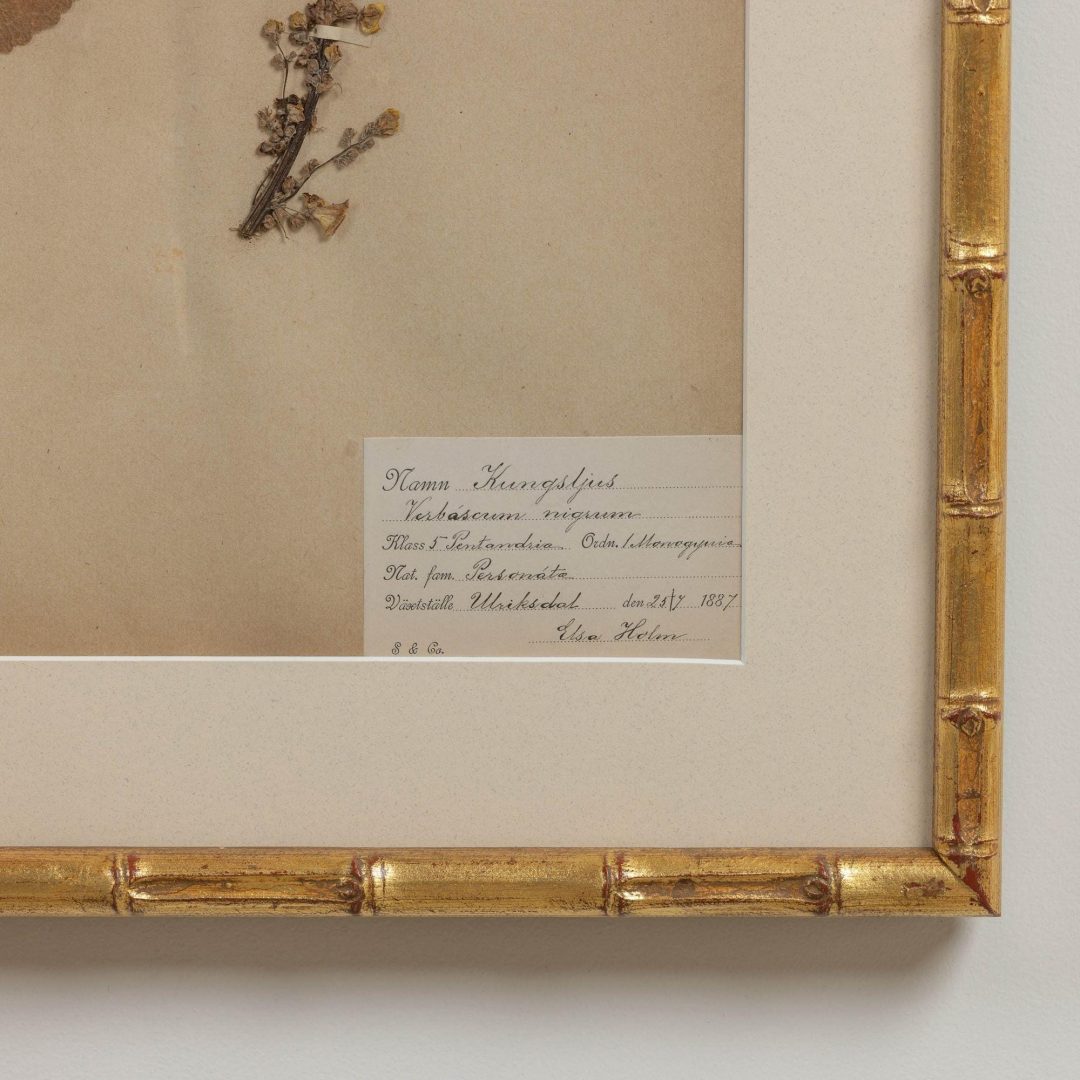 Namn Kungsljus
Verbáscum nigrum
Klass 5 Pentandria Ordn. 1 Monogynia
Nat. fam. Personáta
Växtställe Ulriksdal den 25/7 1887
Elsa Holm
S & Co.